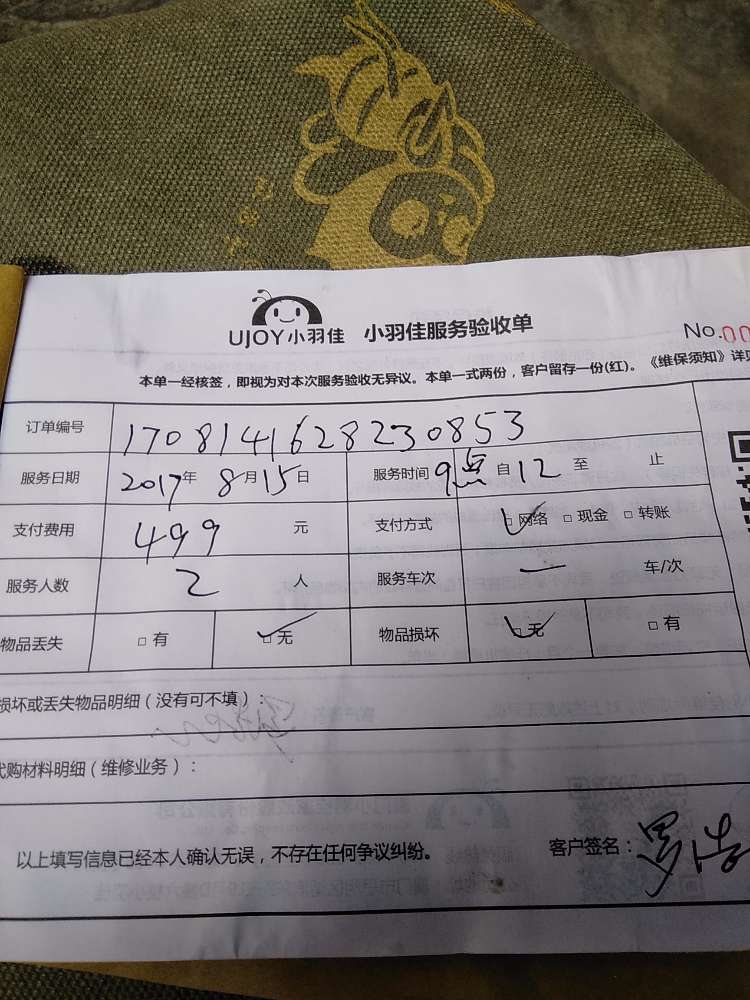 UJOY小羽佳 小羽佳服务验收单
No.00
本单一经核签，即视为对本次服务验收无异议。本单一式两份，客户留存一份(红)。《维保须知》详见
订单编号 1708141628230853
服务日期 2017年8月15日 服务时间 9点自12至 止
支付费用 499 元 支付方式 □网络 □现金 □转账
服务人数 2 人 服务车次 一 车/次
物品丢失 □有 □无 物品损坏 □无 □有
损坏或丢失物品明细（没有可不填）：
代购材料明细（维修业务）：
以上填写信息已经本人确认无误，不存在任何争议纠纷。 客户签名：罗浩